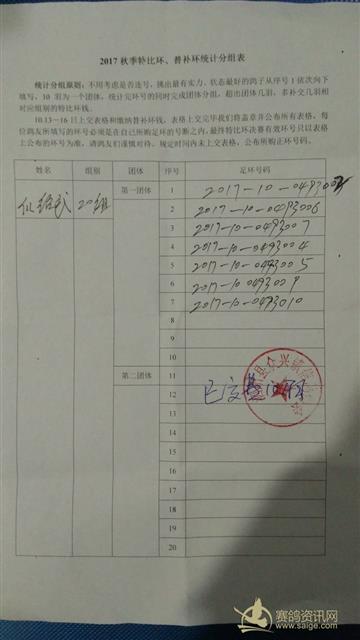 2017 秋季特比环、普补环统计分组表
统计分组原则：不用考虑是否连号，挑出最有实力、状态最好的鸽子从序号 1 依次向下
填写，10 羽为一个团体，统计完环号的同时完成团体分组，超出团体几羽，多补交几羽相
对应组别的特比环钱。
10.13－16 日上交表格和缴纳普补环钱，表格上交完毕我们将盖章并公布所有表格，每
位鸽友所填写的环号必须是在自己所购足环的号断之内，最终特比环决赛有效环号只以表格
上公布的环号为准，请鸽友们谨慎对待。规定时间内未上交表格，公布所购正环号码。
姓名 组别 团体 序号 足环号码
20组 第一团体 1 2017-10-049300
2 2017-10-0493006
3 2017-10-0493007
4 2017-10-0493004
5 2017-10-0493005
6 2017-10 0493009
7 2017-10-0493010
8
9
10
第二团体 11
12 已交
13
14
15
16
17
18
19
20
赛鸽资讯网
www.saige.com